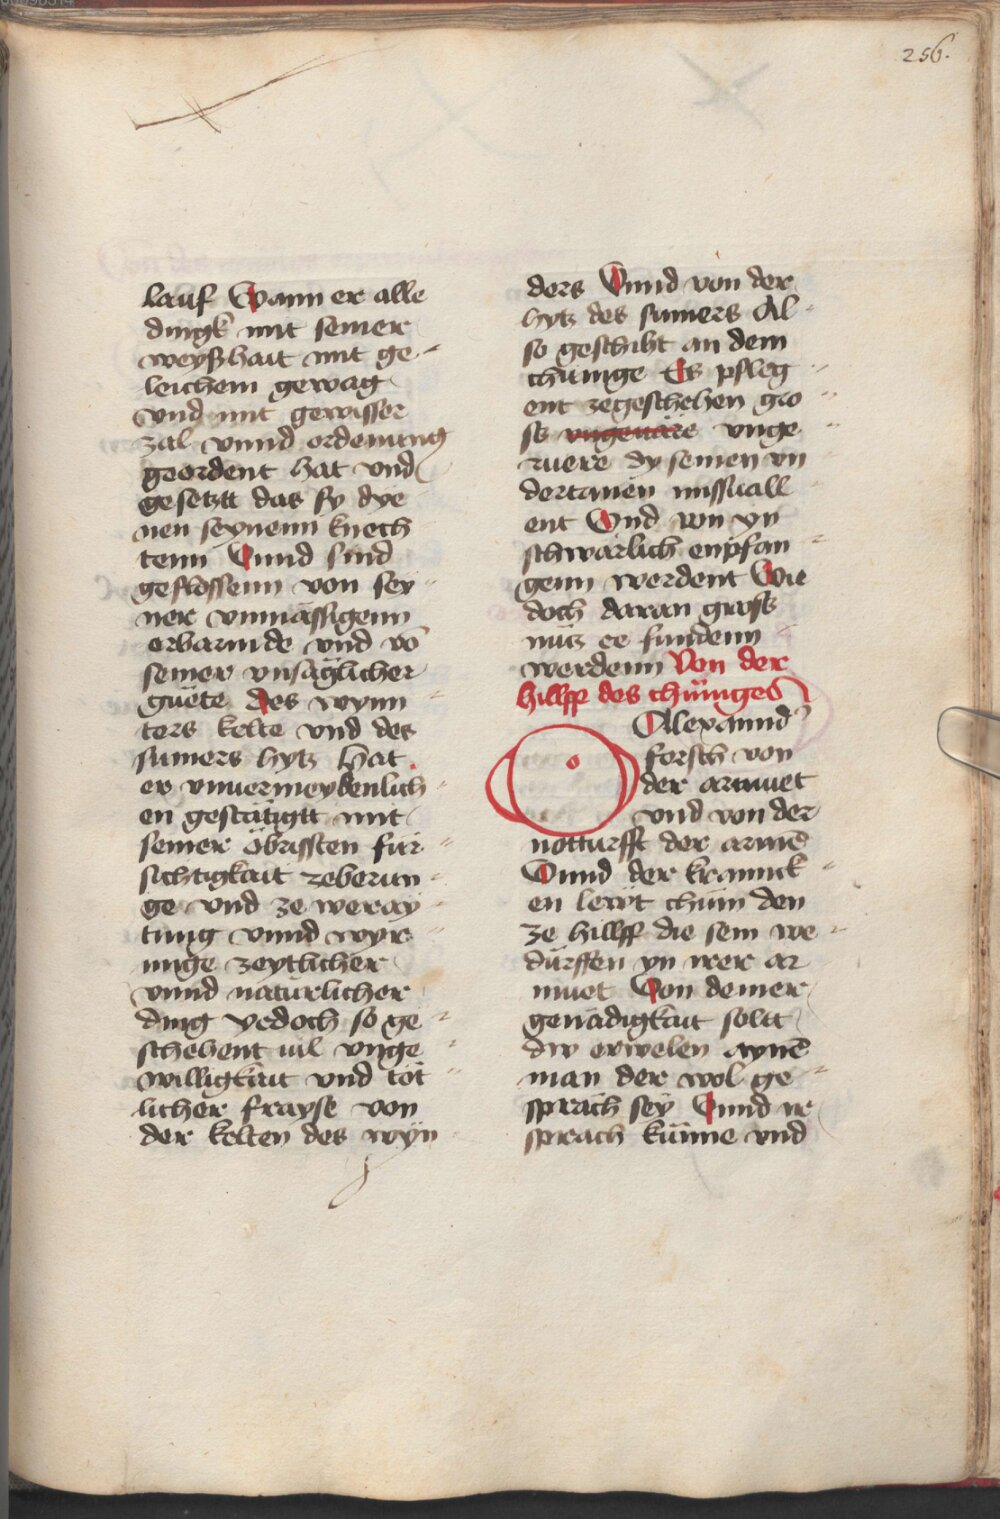 256.
lauf Wann er alle
dingk mit seiner
weyßhait mit ge-
leichem gewag
vnd mit gewisser
zal vnnd ordenung
geordent hat vnd
gesetzt das sy dye
nen seynenn knech
tenn Vnnd sind
geflossenn von sey
ner vnmässigenn
erbarmde vnd vō
seiner vnsäglicher
guëte des wynn
ters kelte vnd des
sumers hytz hat
er vnuermeydenlich
en gestätigtt mit
seiner öbristen für
sichtigkait zeberun
ge vnd ze
tung vnnd wyr
unge zeytlicher
vnnd natürlicher
ding yedoch so ge
schehent uil vnge
willigkait vnd töt
licher frayse von
der kelten des wyn
ders Vnnd von der
hytz des sumers Al
so geschiht an dem
chünige Es pfleg
ent zegeschehen gro
ss vnge
uere dy seinen vn
dertanen missuall
ent Vnd von yn
schwärlich enpfan
genn werdent Wie
doch daran gross
nutz ee fundenn
werdenn Von der
hillff des chüniges
O Alexannd
forsch von
der armuet
vnd von der
notturfft der armē
Vnnd der kranck
en lewt chüm den
ze hillff die sein we
dürffen yn irer ar
muet Von deiner
genädigkait soltt
dw erwelen aynē
man der wol ge
spräch sey Vnnd ir
sprach künne vnd